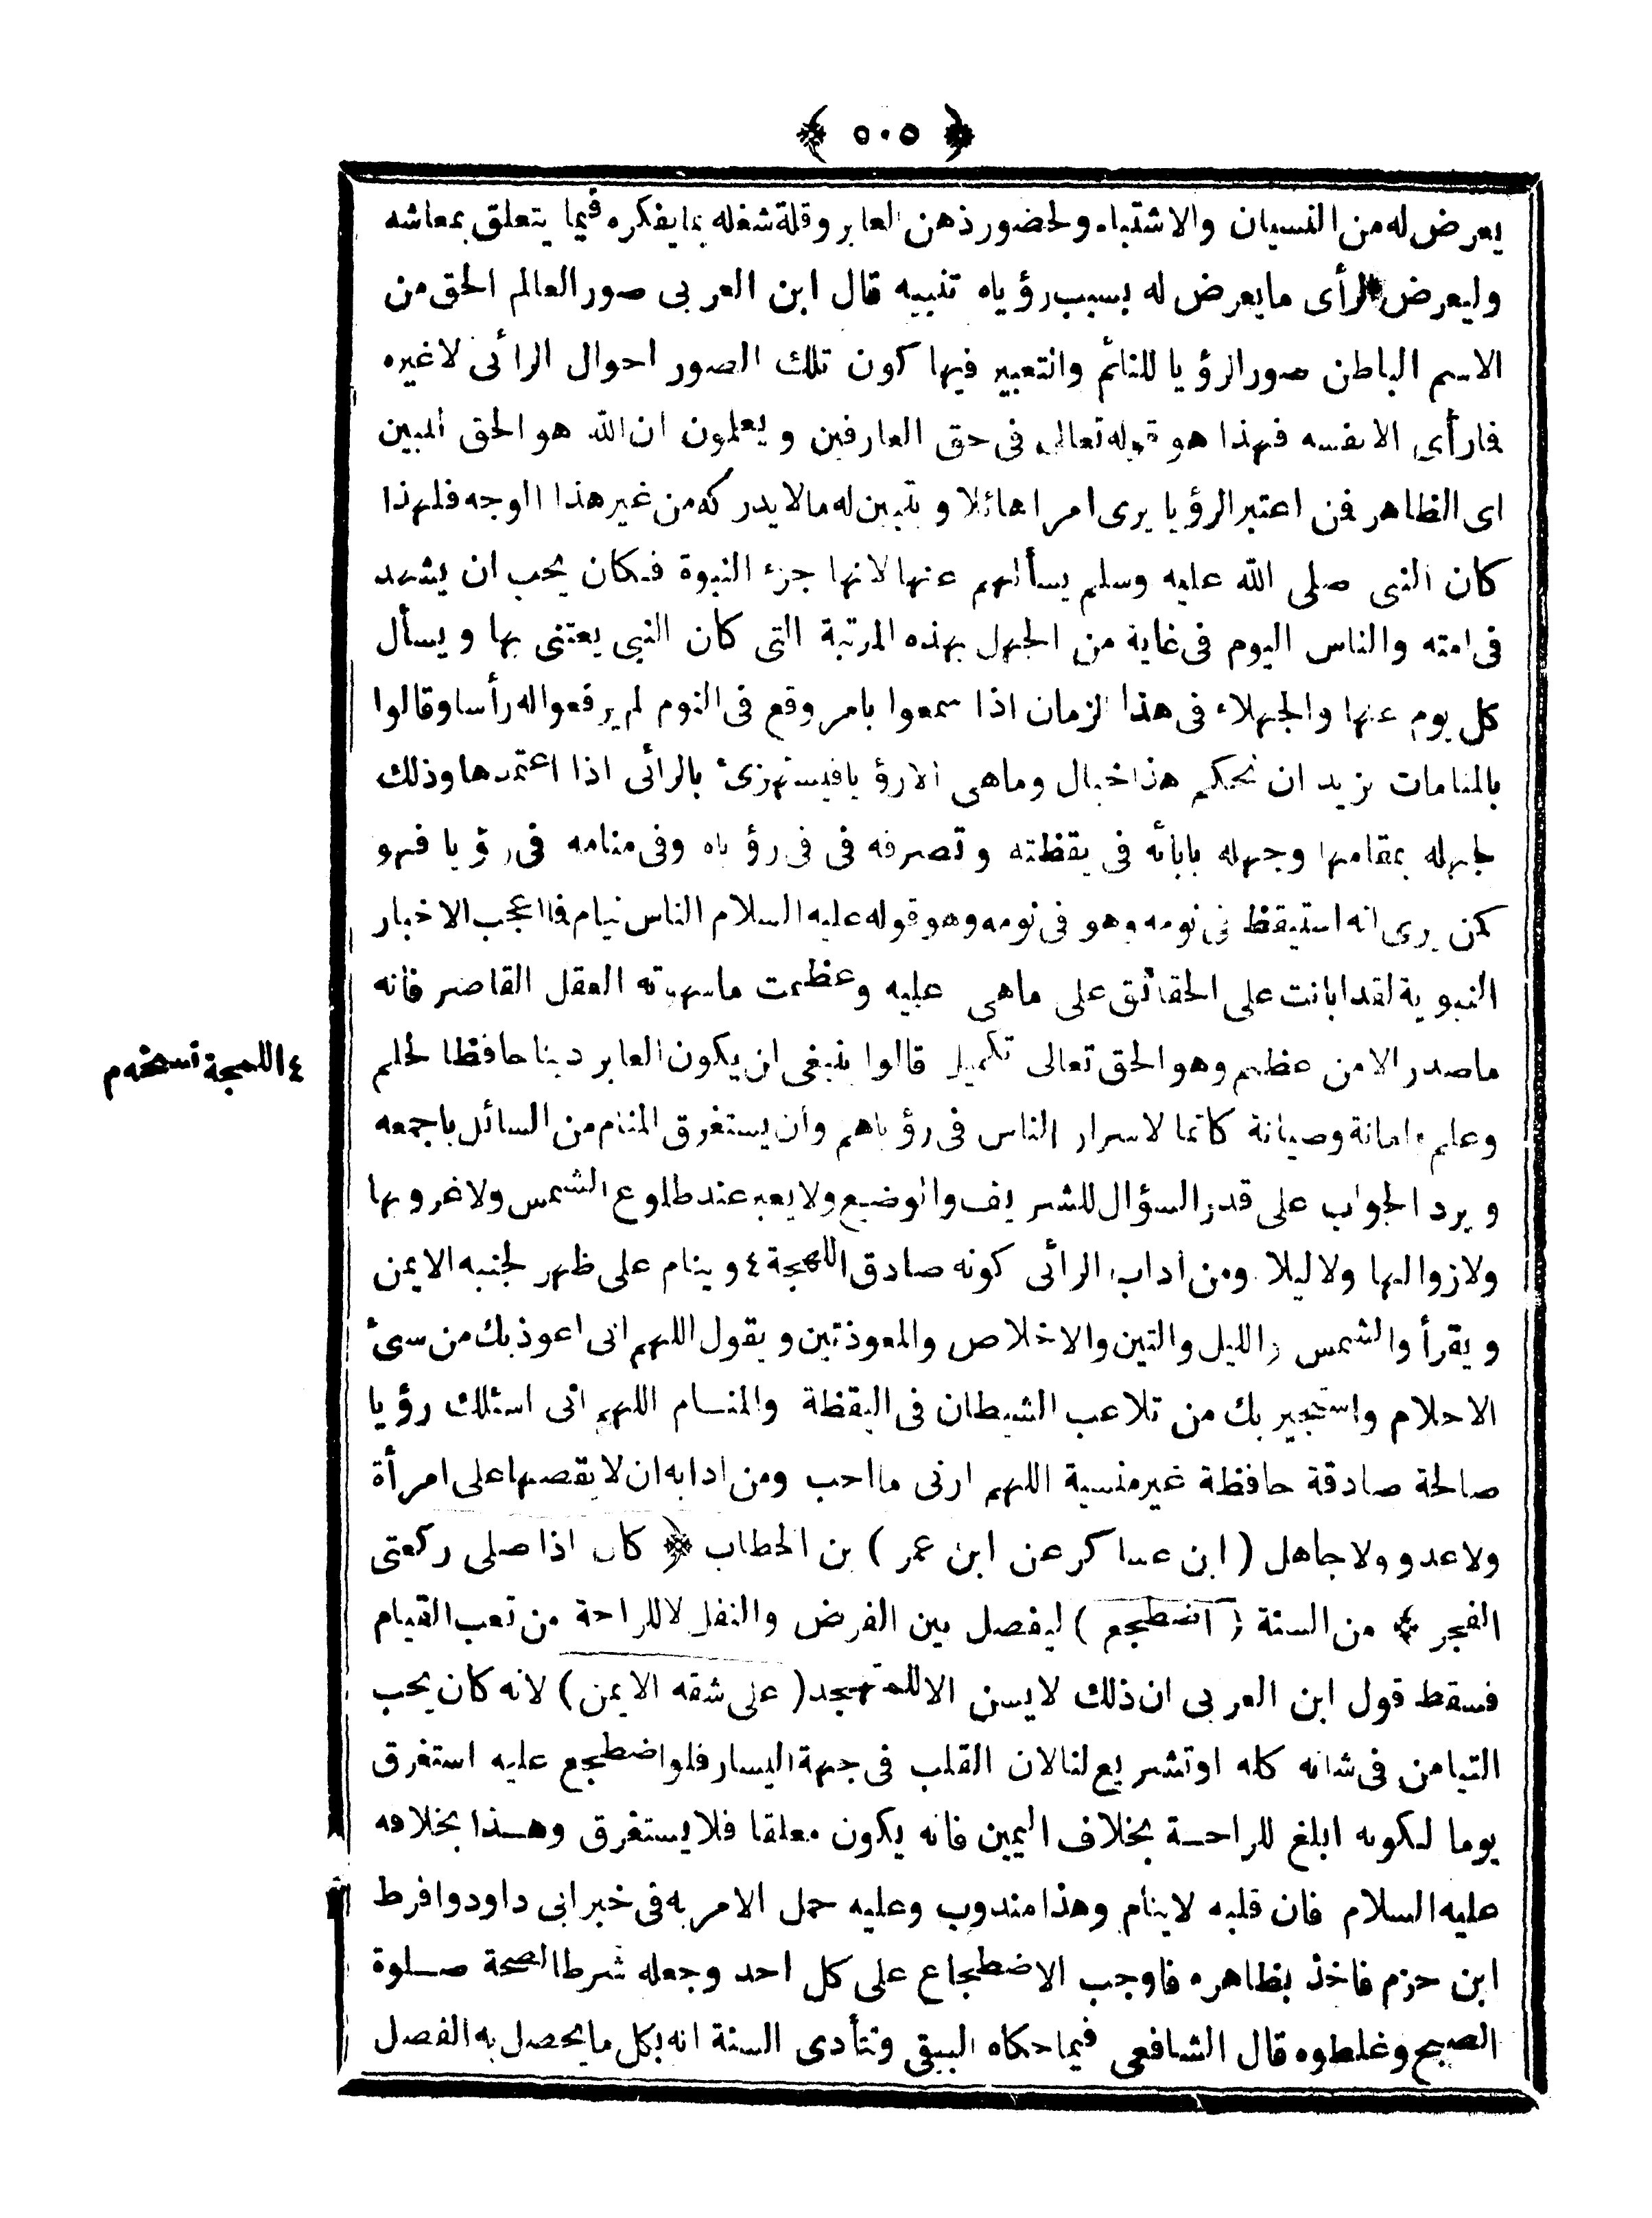 ﴿ ٥٠٥ ﴾
يعرض له من النسيان والاشتباه ولحضور ذهن العابر وقلة شغله بما يفكره فيما يتعلق بمعاشه
وليعرض الرأى ما يعرض له بسبب رؤياه تنبيه قال ابن العربى صور العالم الحق من
الاسم الباطن صور الرؤيا للنائم والتعبير فيها كون تلك الصور احوال الرائى لا غيره
فارأى الا نفسه فهذا هو قوله تعالى فى حق العارفين ويعلمون ان الله هو الحق المبين
اى الظاهر فن اعتبر الرؤيا يرى امرا هائلا ويتبين له مالا يدركه من غير هذا الوجه فلهذا
كان النبى صلى الله عليه وسلم يسألهم عنها لانها جزء النبوة فكان يحب ان يشهد
فى امته والناس اليوم فى غاية من الجهل بهذه المرتبة التى كان النبى يعتنى بها ويسأل
كل يوم عنها والجهلاء فى هذا الزمان اذا سمعوا بامر وقع فى النوم لم يرفعوا له رأسا وقالوا
بالمنامات يزيد ان نحكم هذا خيال وماهى الارؤيا فيستهزئ بالرائى اذا اعتمدها وذلك
لجهله بمقامها وجهله بابأنه فى يقظته وتصرفه فى فى رؤياه وفى منامه فى رؤيا فهو
كمن يرى انه استيقظ فى نومه وهو فى نومه وهو قوله عليه السلام الناس نيام فما اعجب الاخبار
النبوية لقد ابانت على الحقائق على ماهى عليه وعظمت ماسهوته العقل القاصر فانه
ماصدر الا من عظيم وهو الحق تعالى تكميل قالوا ينبغى ان يكون العابر دينا حافظا لحلم
وعلم وامانة وصيانة كاتما لاسرار الناس فى رؤياهم وان يستغرق المنام من السائل باجمعه
ويرد الجواب على قدر السؤال للشريف والوضيع ولا يعبر عند طلوع الشمس ولا غروبها
ولا زوالها ولا ليلا ومن اداب الرائى كونه صادق اللهجة ٤ وينام على ظهر لجنبه الايمن
ويقرأ والشمس والليل والتين والاخلاص والمعوذتين ويقول اللهم انى اعوذ بك من سئ
الاحلام واستجير بك من تلاعب الشيطان فى اليقظة والمنام اللهم انى اسئلك رؤيا
صالحة صادقة حافظة غير منسية اللهم ارنى ما احب ومن ادابه ان لا يقصها على امرأة
ولا عدو ولا جاهل ( ابن عساكر عن ابن عمر ) بن الخطاب ﴿ كان اذا صلى ركعتى
الفجر ﴾ من السنة ( اضطجع ) ليفصل بين الفرض والنفل لا للراحة من تعب القيام
فسقط قول ابن العربى ان ذلك لا يسن الا للمتهجد ( على شقه الايمن ) لانه كان يحب
التيامن فى شانه كله او تشريع لنا لان القلب فى جهة اليسار فلو اضطجع عليه استغرق
يوما لكونه ابلغ للراحة بخلاف اليمين فانه يكون معلقا فلا يستغرق وهذا بخلافه
عليه السلام فان قلبه لا ينام وهذا مندوب وعليه حمل الامر به فى خبر ابى داود وافرط
ابن حزم فاخذ بظاهره فاوجب الاضطجاع على كل احد وجعله شرطا لصحة صلوة
الصبح وغلطوه قال الشافعى فيما حكاه البيقى وتتأدى السنة انه بكل ما يحصل به الفصل
٤ اللهجة نسخه م